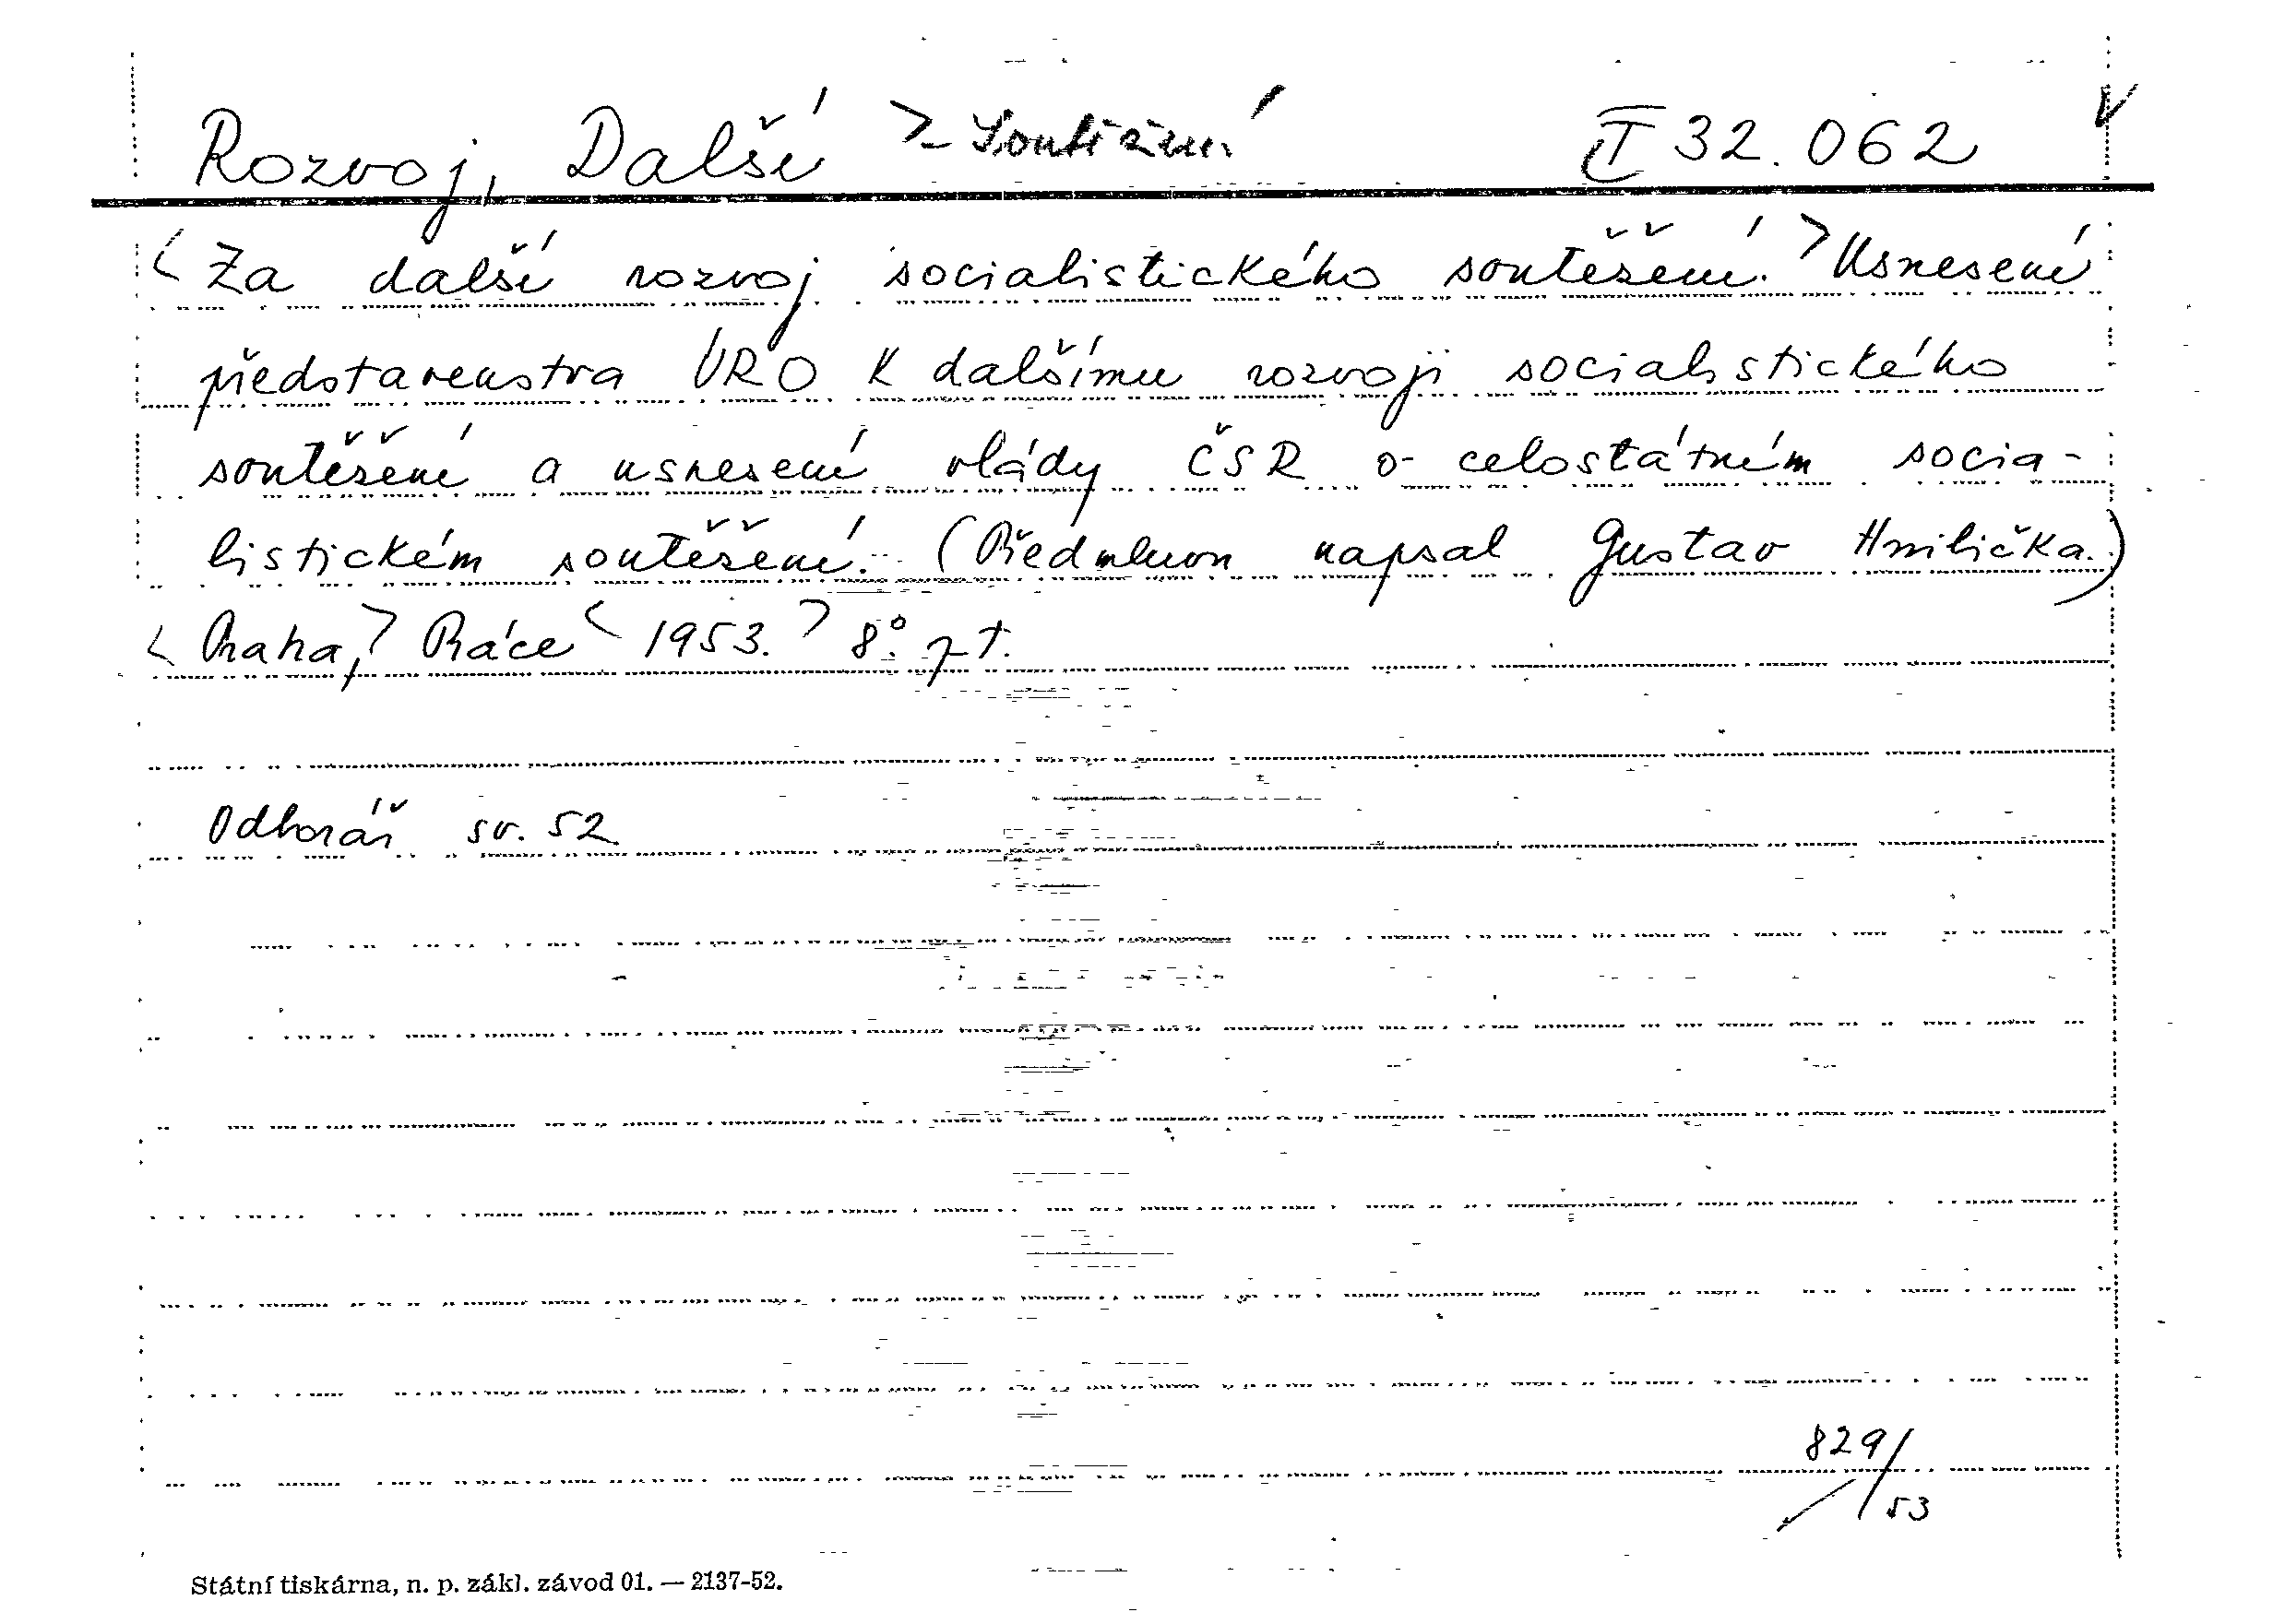 Rozvoj, Další > - Soutěžení II 32.062 V
< Za další rozvoj socialistického soutěžení. > Usnesení
představenstva ÚRO k dalšímu rozvoji socialistického
soutěžení a usnesení vlády ČSR o celostátním socia-
listickém soutěžení. (Předmluvu napsal Gustav Hnilička.)
< Praha, > Práce < 1953. > 8°. pt.
Odborář sv. 52
829/53
Státní tiskárna, n. p. zákl. závod 01. — 2137-52.